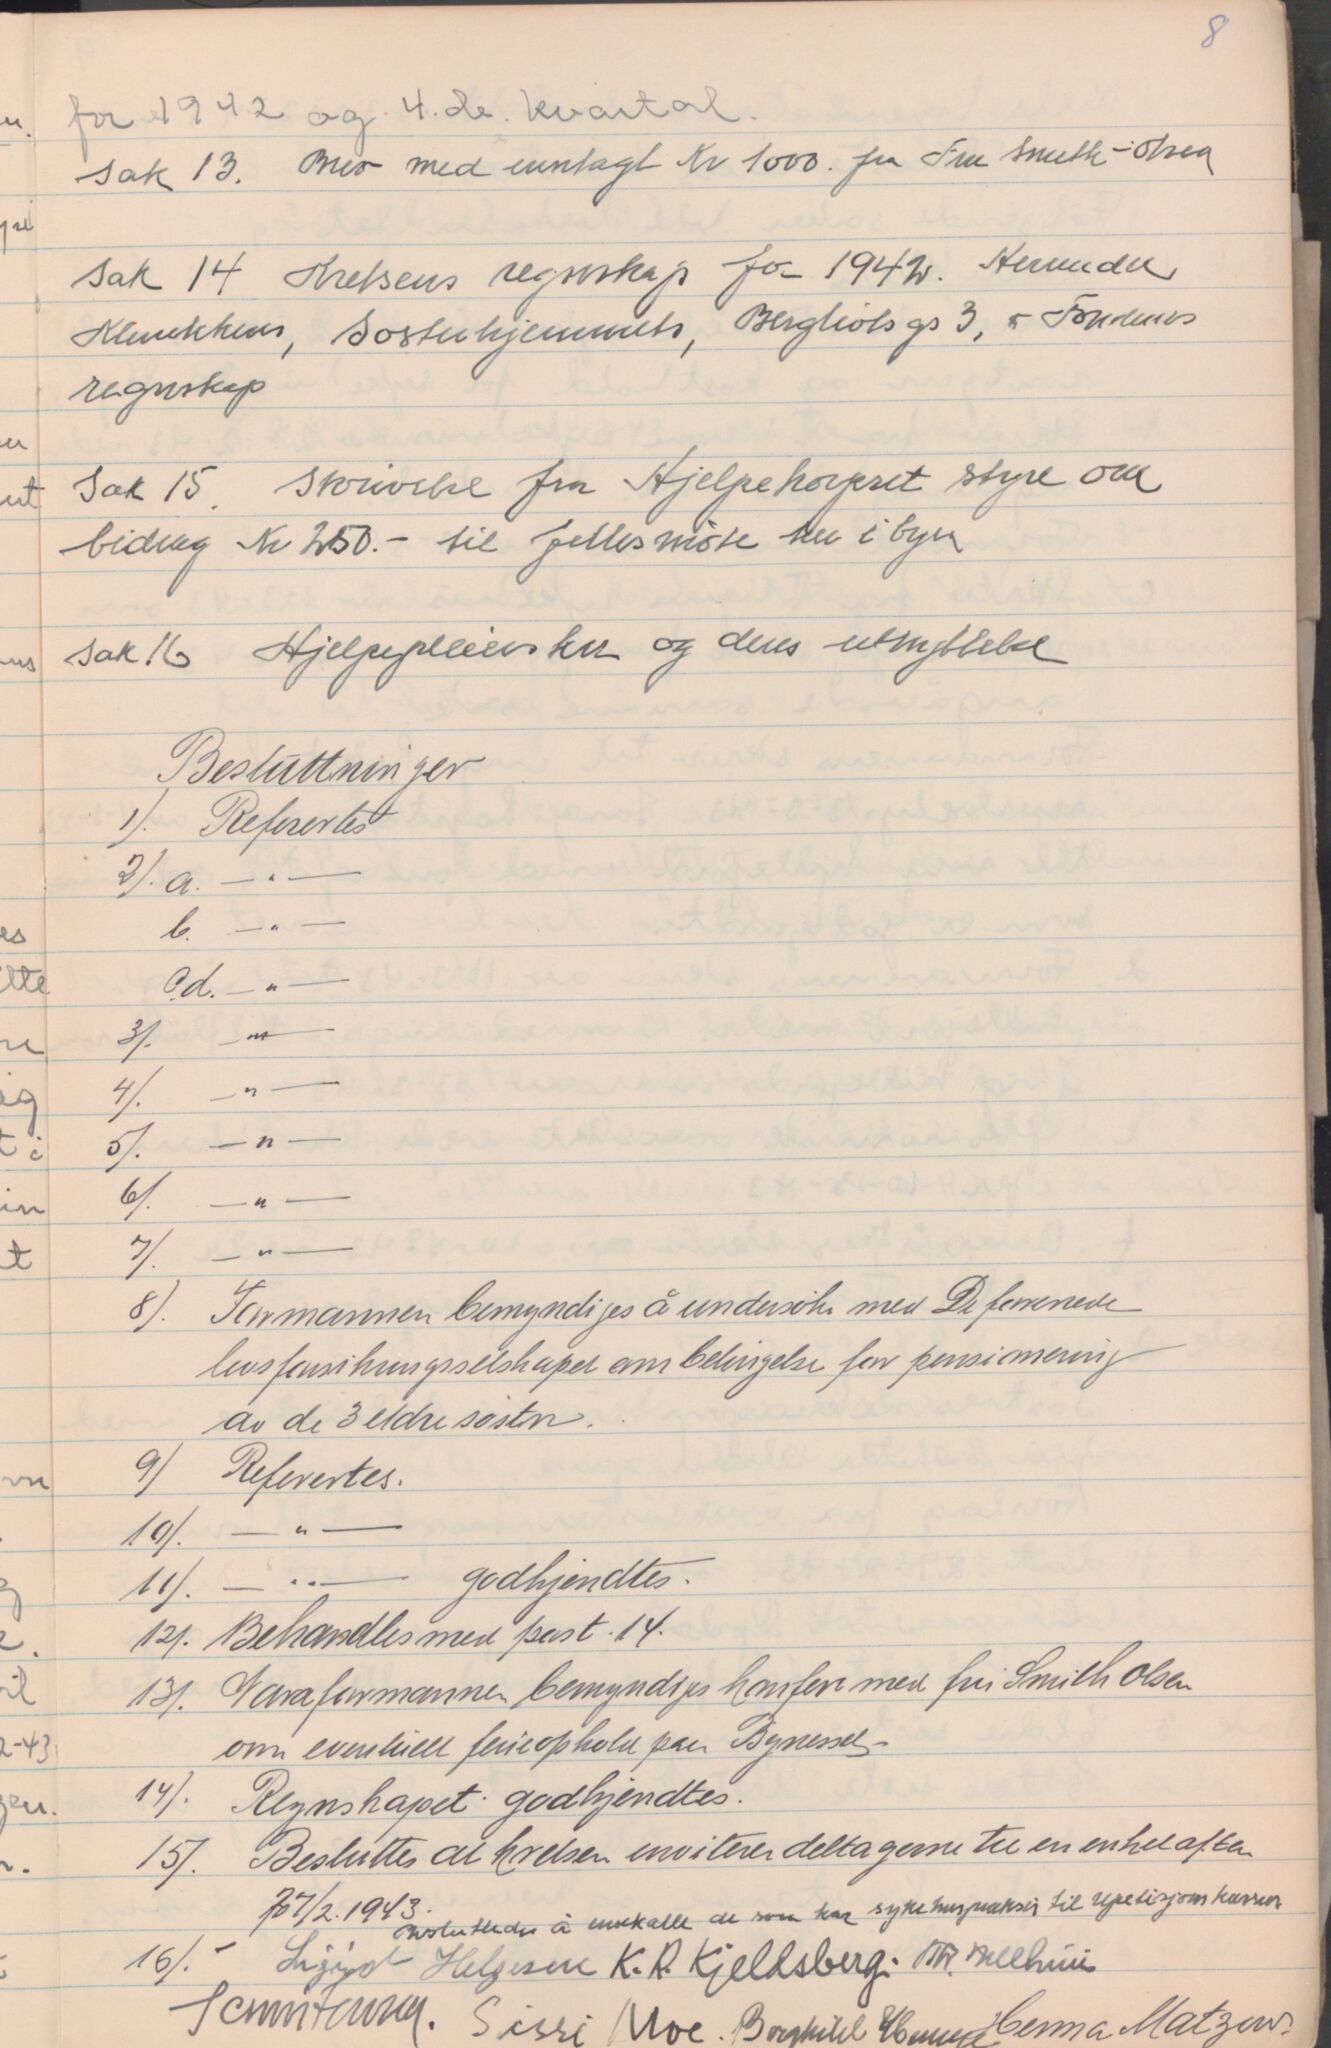 8
for 1942 og 4.de. kvartal.
Sak 13. Brev med inntagt Kr 1000. fra Fru Smith-Olsen
Sak 14 Kretsens regnskap for 1942. Herunder
Klinikkens, Søsterhjemmets, Bergliots gs 3, Fondenes
regnskap
Sak 15. Skrivelse fra Hjelpekorpset styre om
bidrag Kr 250.- til fellesmöte her i byen
Sak 16 Hjelpepleiersker og deres utnyttelse
Besluttninger
1). Referertes
2). a. — " —
b. — " —
c.d. — " —
3). — " —
4). — " —
5). — " —
6). — " —
7). — " —
8). Formannen bemyndiges å undersöke med De forenede
livsforsikringsselskaper om betingelse for pensionering
av de 3 eldre søstre.
9) Referertes.
10). — " —
11). — " — godkjendtes.
12). Behandles med post. 14.
13). Varaformannen bemyndiges konferere med fru Smith Olsen
om eventuell ferieophold paa Bynesset
14). Regnskapet godkjendtes.
15). Besluttes at kretsen inviterer deltagerne til en enkel aften
7/2. 1943.
besluttedes å innkalle de som har sykehuspraksis til repetisjonskursus
16). - Sigrid Helgesen K. R. Kjeldsberg.
Sissi Moe. Borghild Herma Matzow.